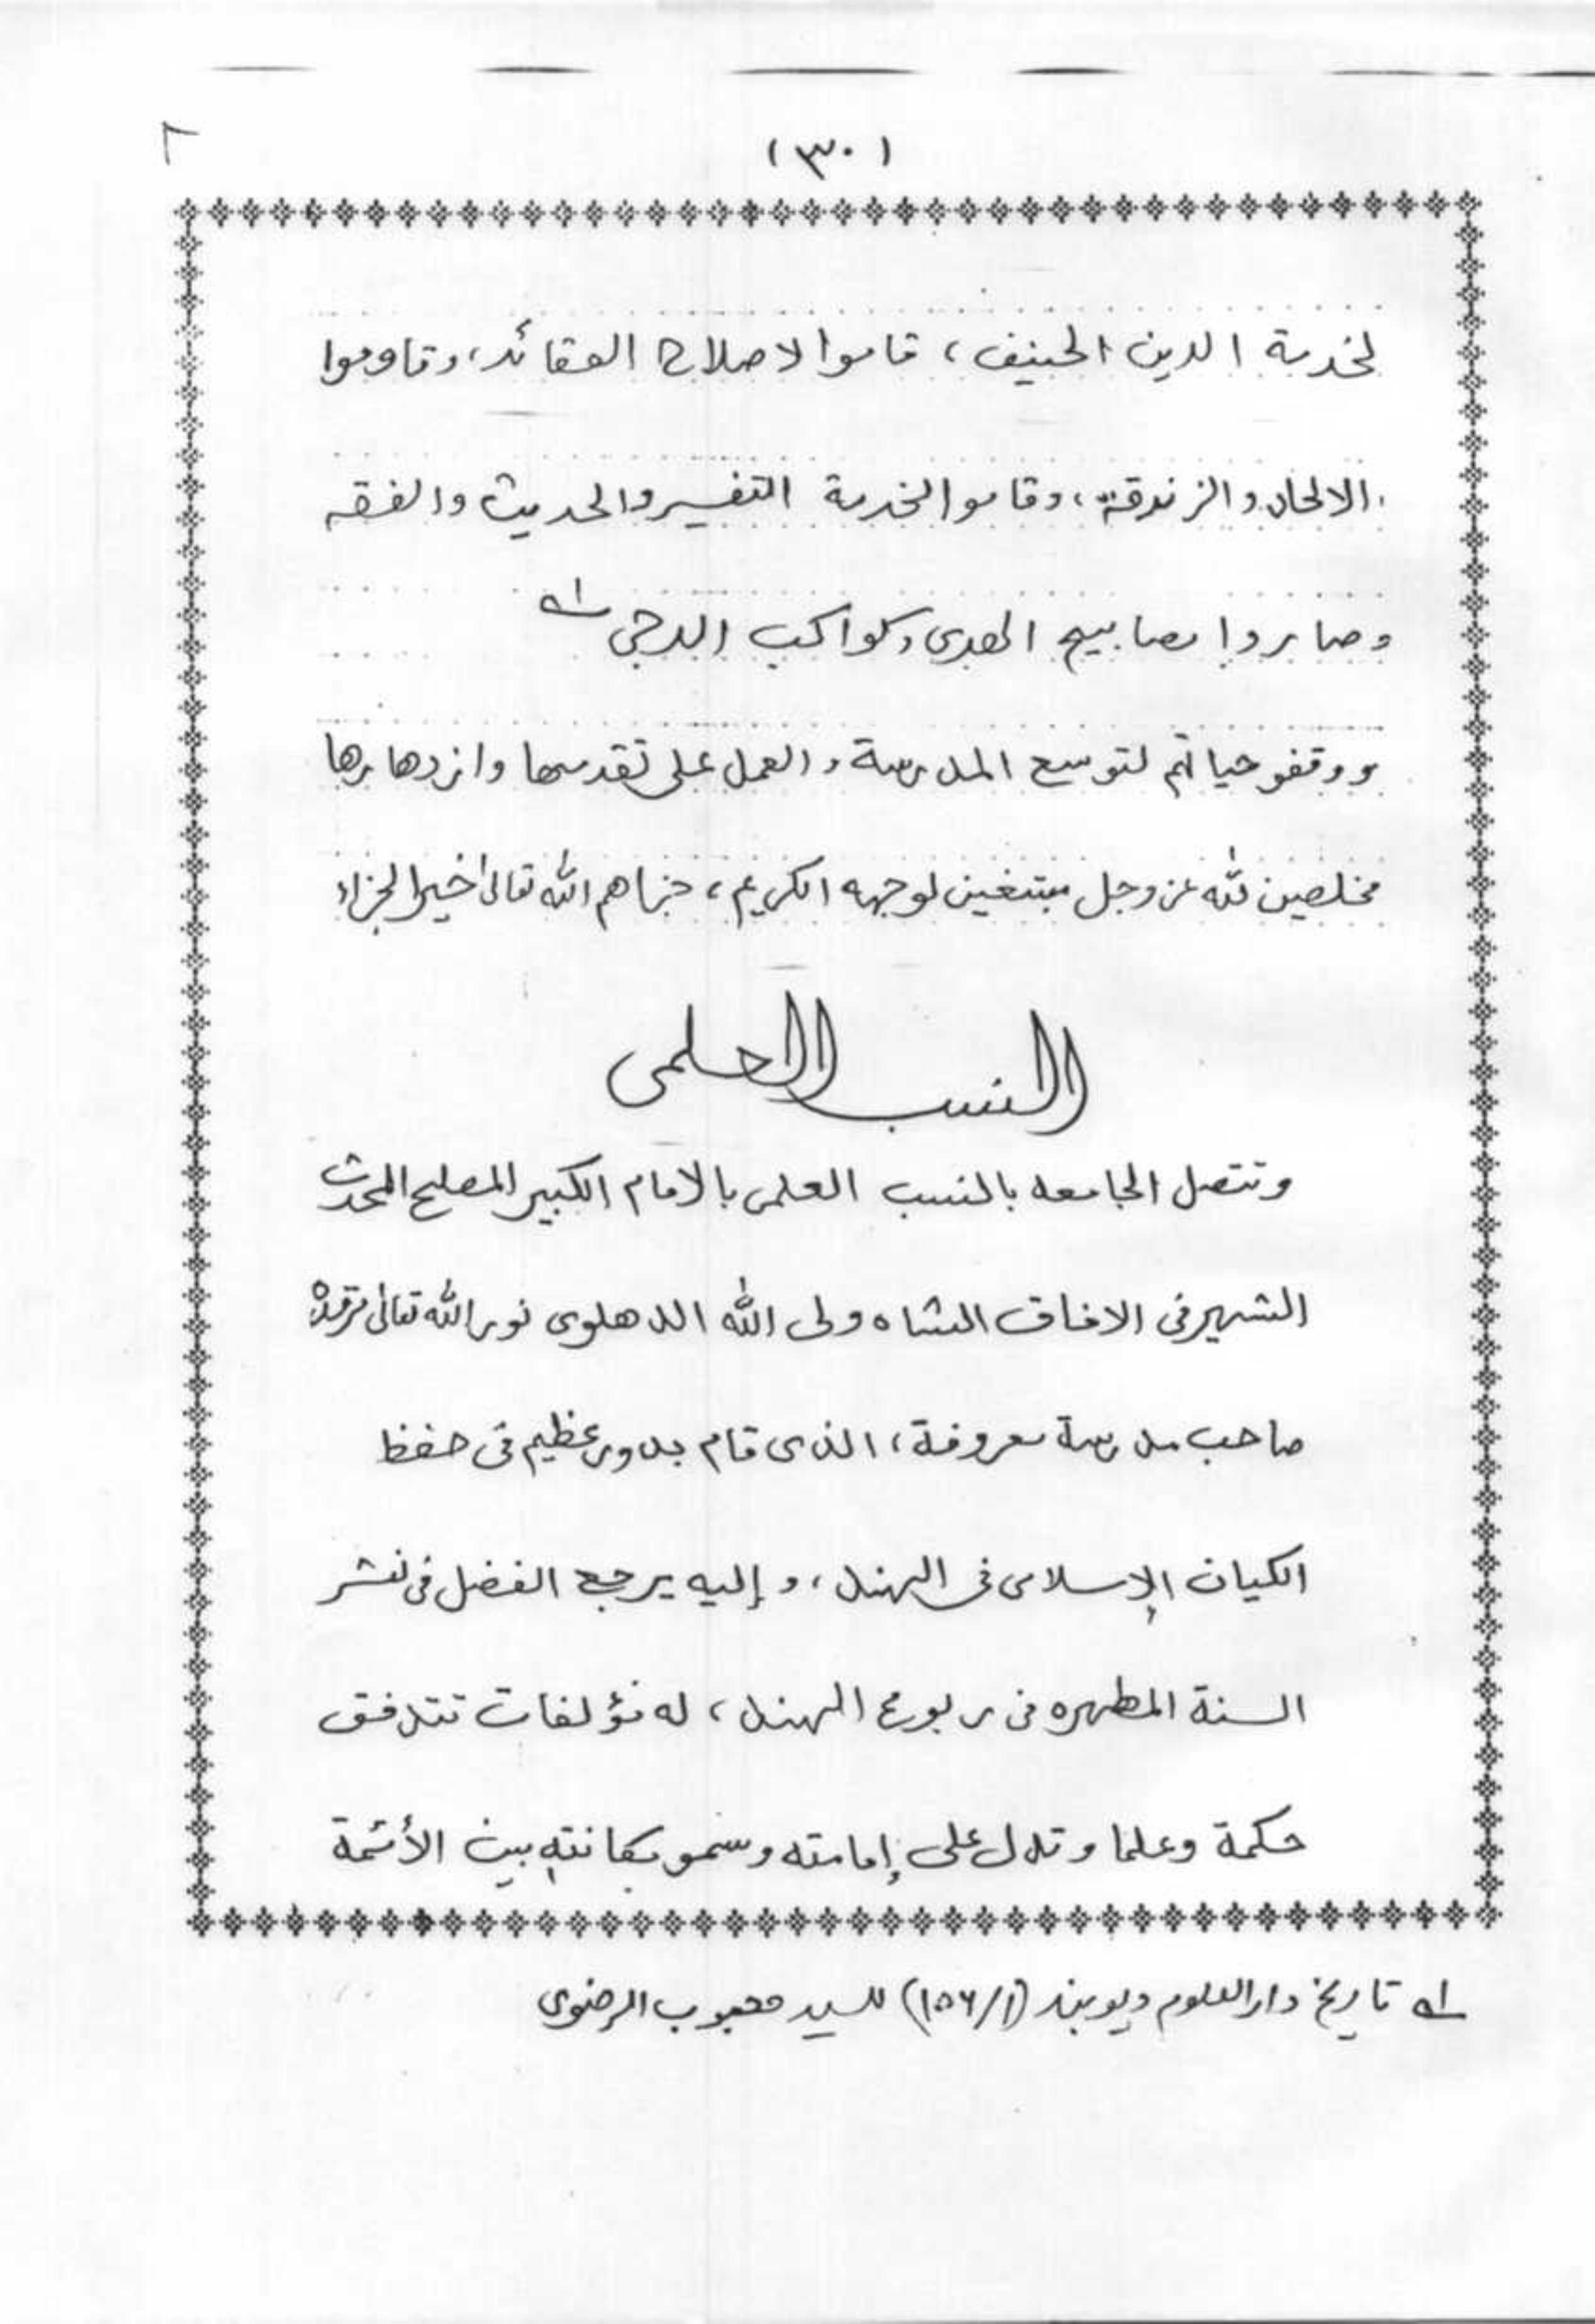 (٣٠)
لخدمة الدين الحنيف، قاموا لاصلاح العقائد، وقاوموا
الالحاد والزندقة، وقاموا لخدمة التفسير والحديث والفقه
وصاروا مصابيح الهدى وكواكب الدجى ١ه
ووقفو حياتهم لتوسع المدرسة والعمل على تقدمها وازدهارها
مخلصين لله عز وجل مبتغين لوجهه الكريم، جزاهم الله تعالى خير الجزاء
النسب العلمى
وتتصل الجامعه بالنسب العلمى بالامام الكبير المصلح المحدث
الشهير فى الافاق الشاه ولى الله الدهلوى نور الله تعالى مرقده
صاحب مدرسة معروفة، الذى قام بدور عظيم فى حفظ
الكيان الإسلامى فى الهند، وإليه يرجع الفضل فى نشر
السنة المطهره فى ربوع الهند، له مؤلفات تتدفق
حكمة وعلما وتدل على إمامته وسمو مكانته بين الأئمة
١ه تاريخ دار العلوم ديوبند (١/١٥٦) للسيد محبوب الرضوى